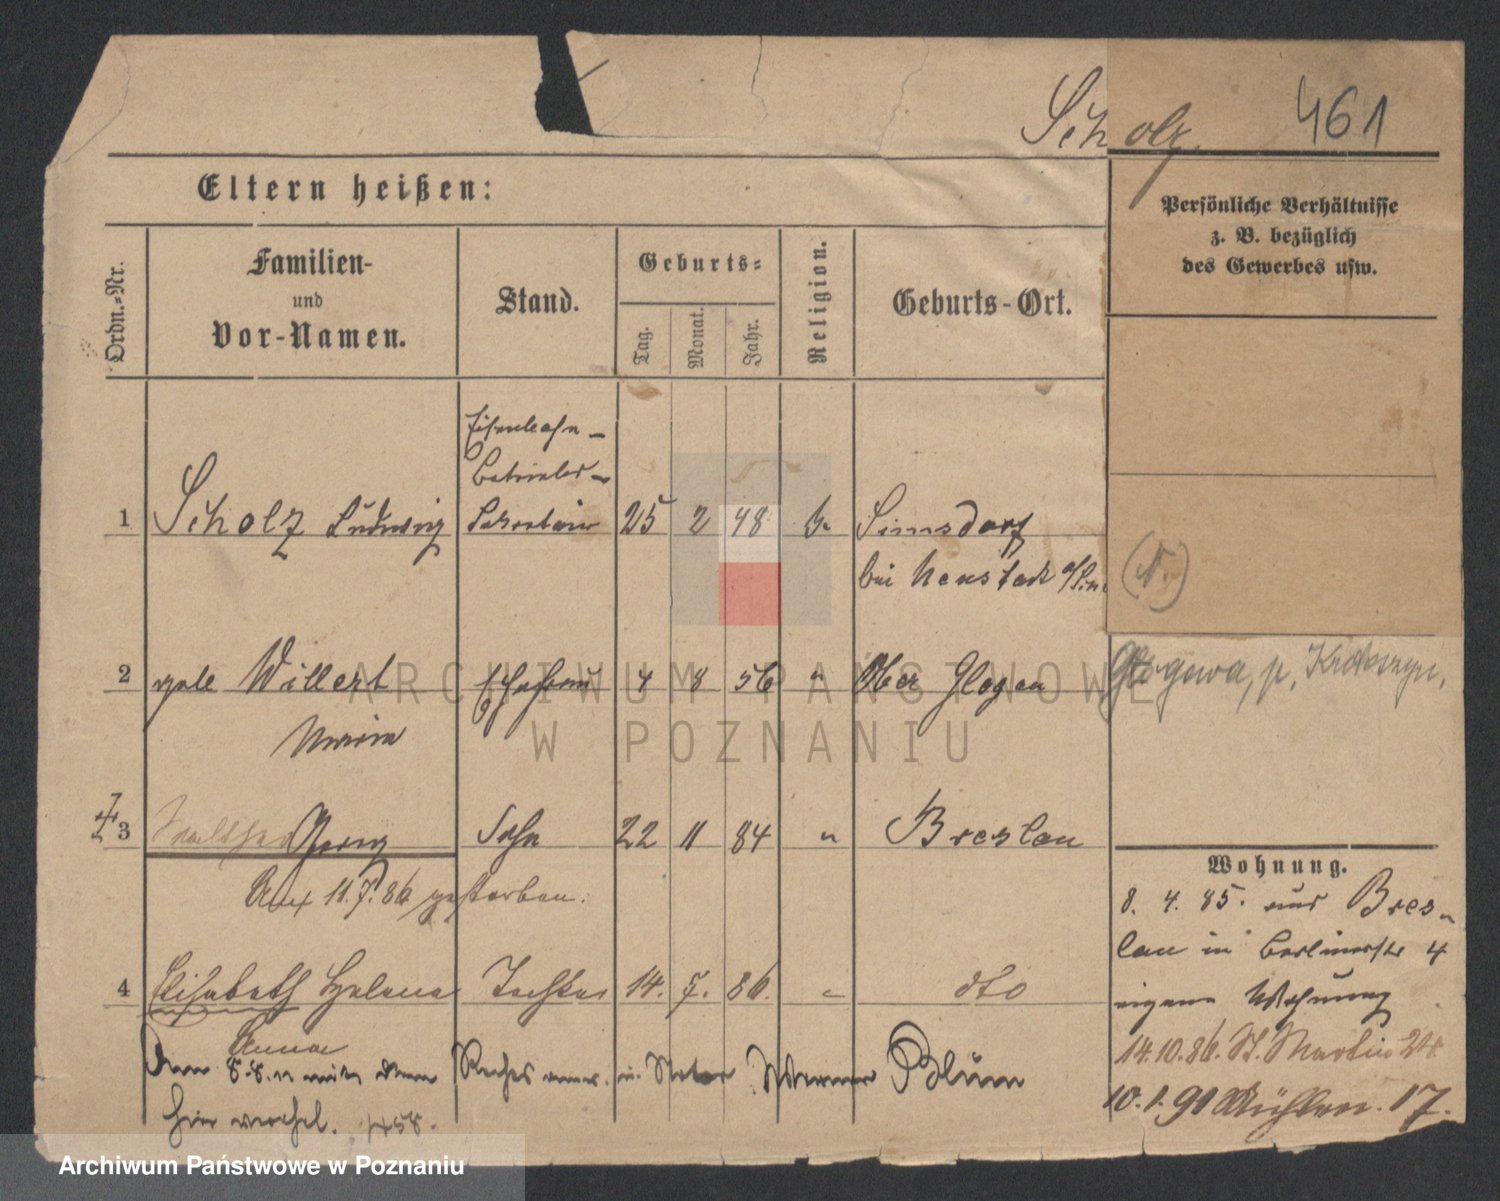 Scholz.
461
Eltern heißen:
Persönliche Verhältnisse
z. B. bezüglich
des Gewerbes usw.
Ordn.-Nr.
Familien-
und
Vor-Namen.
Stand.
Geburts-
Tag.
Monat.
Jahr.
Religion.
Geburts-Ort.
Eisenbahn-
Betriebs-
1 Scholz Ludwig Sekretair 25 2 48 k. Simsdorf
bei Neustadt
(N.)
2 geb. Willert Ehefrau 4 8 56 " Ober Glogau
Maria
Głogowa, p. Krotoszyn.
3 Walther Georg Sohn 22 11 84 " Breslau
Am 11.7.86 gestorben.
4 Elisabeth Helene Tochter 14. 7. 86. " dto
Anna
Wohnung.
8. 4. 85. aus Bres-
lau in Berlinerstr 4
eigene Wohnung
14.10.86. St. Martin 24
10.1.91 Mühlen. 17.
den 8.8.11 mit dem Rechtsanw. u. Notar Werner Blüm
hier verehel.
ARCHIWUM PAŃSTWOWE
W POZNANIU
Archiwum Państwowe w Poznaniu